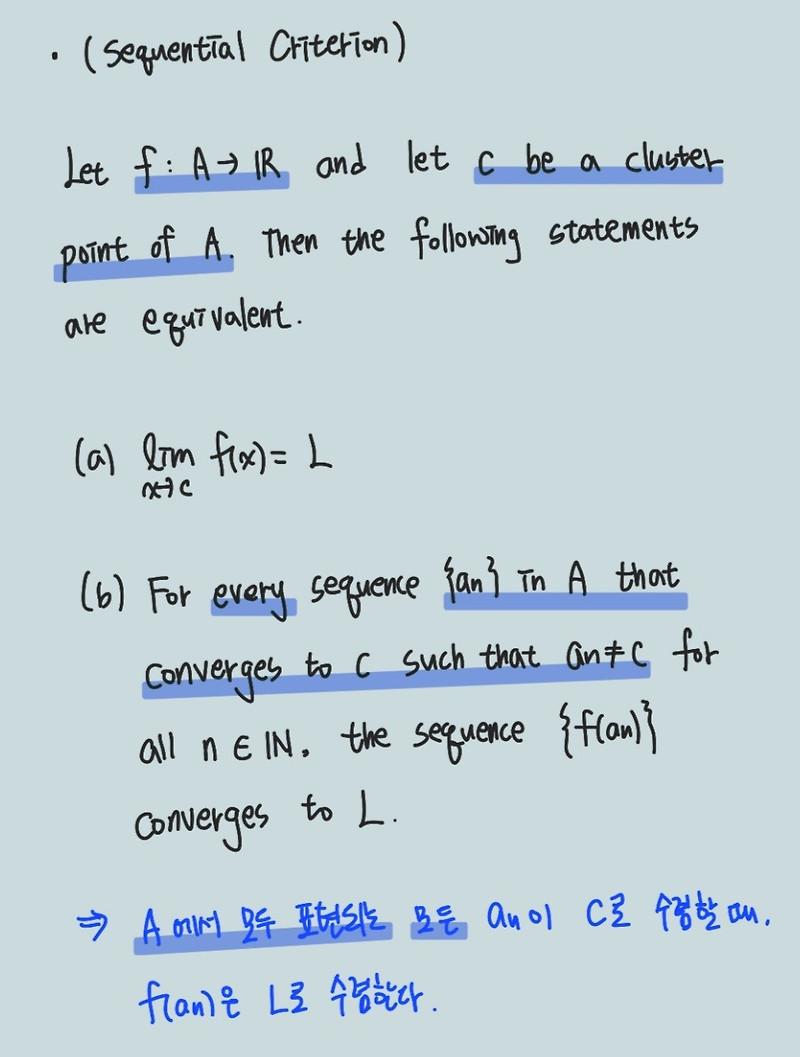 · (Sequential Criterion)
Let f : A → ℝ and let c be a cluster
point of A. Then the following statements
are equivalent.
(a) lim f(x) = L
x→c
(b) For every sequence {an} in A that
converges to c such that an≠c for
all n ∈ ℕ, the sequence {f(an)}
converges to L.
⇒ A에서 모두 표현되는 모든 an이 C로 수렴할 때,
f(an)은 L로 수렴한다.